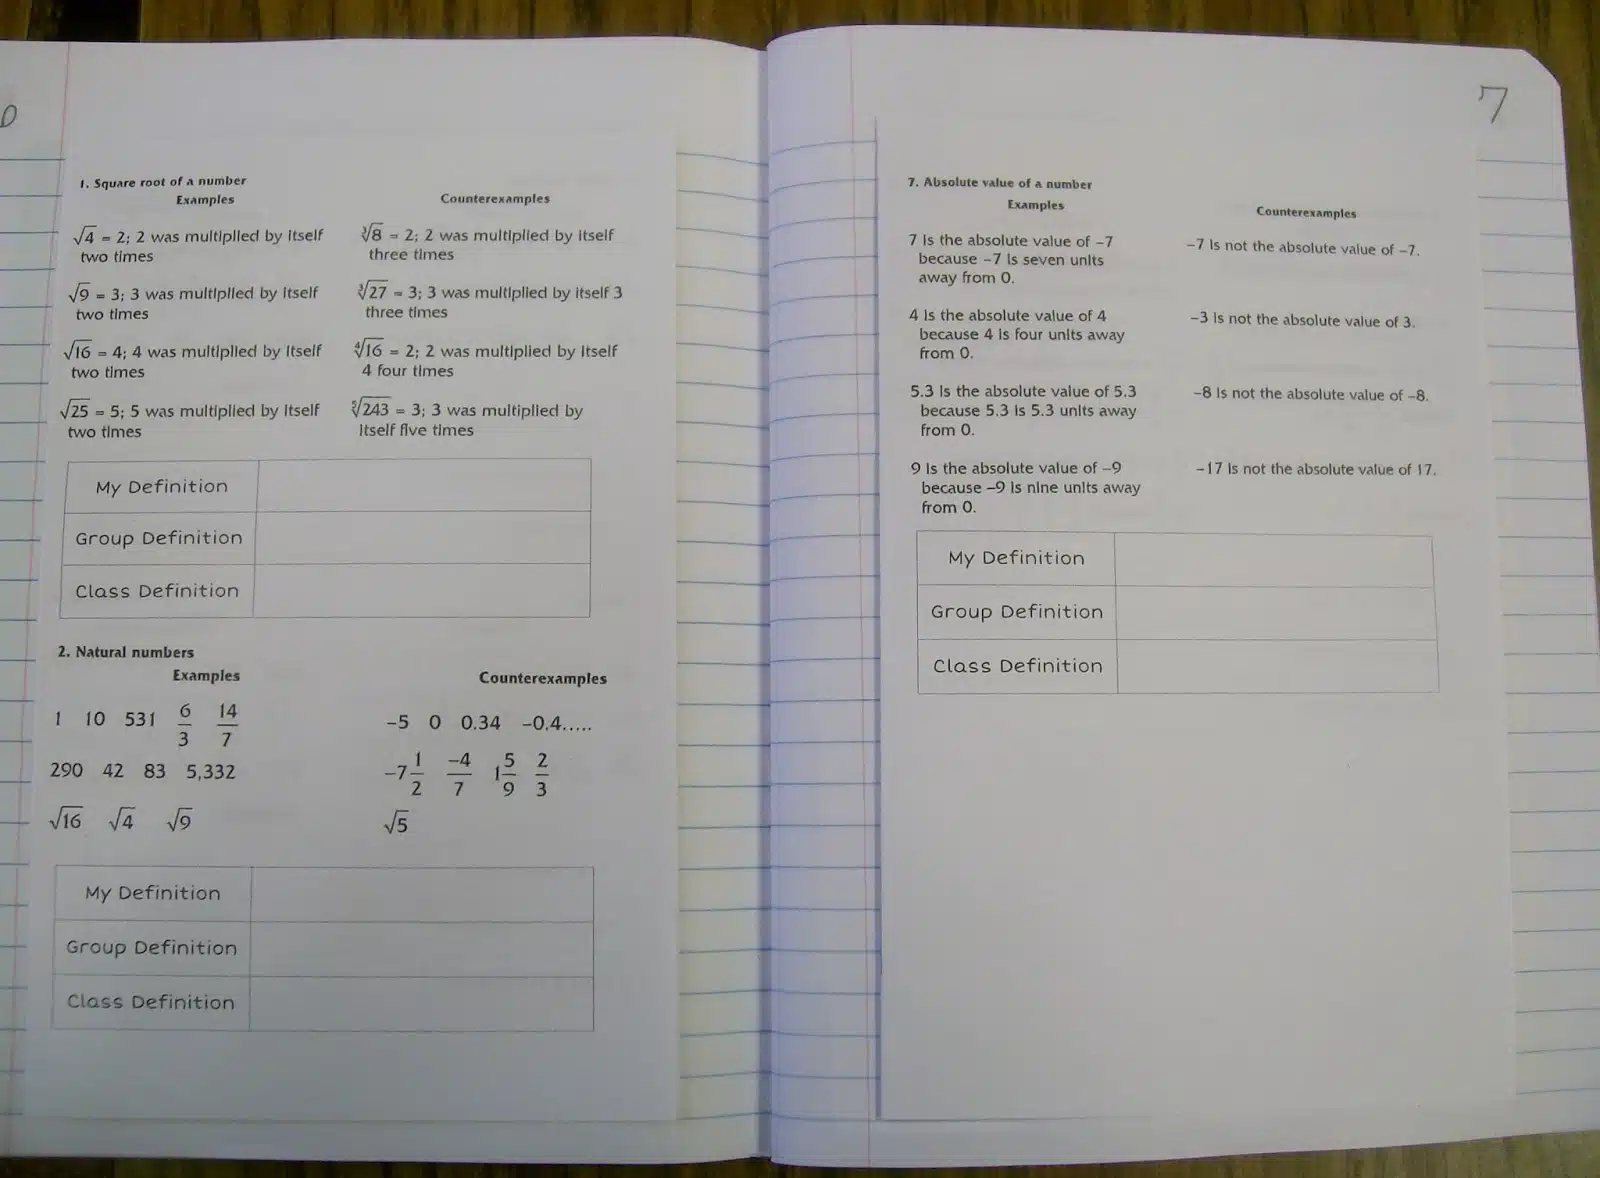 1. Square root of a number
Examples
Counterexamples
√4 = 2; 2 was multiplied by itself
two times
∛8 = 2; 2 was multiplied by itself
three times
√9 = 3; 3 was multiplied by itself
two times
∛27 = 3; 3 was multiplied by itself 3
three times
√16 = 4; 4 was multiplied by itself
two times
∜16 = 2; 2 was multiplied by itself
4 four times
√25 = 5; 5 was multiplied by itself
two times
⁵√243 = 3; 3 was multiplied by
itself five times
My Definition
Group Definition
Class Definition
2. Natural numbers
Examples
Counterexamples
1 10 531 6/3 14/7
290 42 83 5,332
√16 √4 √9
-5 0 0.34 -0.4.....
-7 1/2 -4/7 1 5/9 2/3
√5
My Definition
Group Definition
Class Definition
7
7. Absolute value of a number
Examples
Counterexamples
7 is the absolute value of -7
because -7 is seven units
away from 0.
-7 is not the absolute value of -7.
4 is the absolute value of 4
because 4 is four units away
from 0.
-3 is not the absolute value of 3.
5.3 is the absolute value of 5.3
because 5.3 is 5.3 units away
from 0.
-8 is not the absolute value of -8.
9 is the absolute value of -9
because -9 is nine units away
from 0.
-17 is not the absolute value of 17.
My Definition
Group Definition
Class Definition